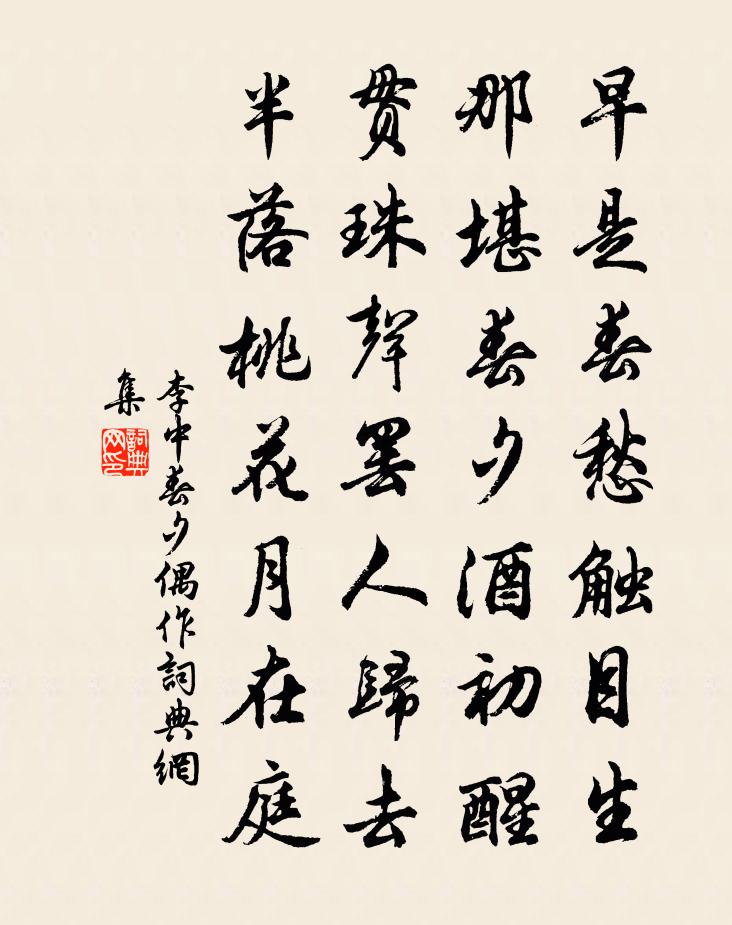 早是春愁触目生
那堪春夕酒初醒
贯珠聲罢人歸去
半落桃花月在庭
李中春夕偶作詞典網
集
詞典网印